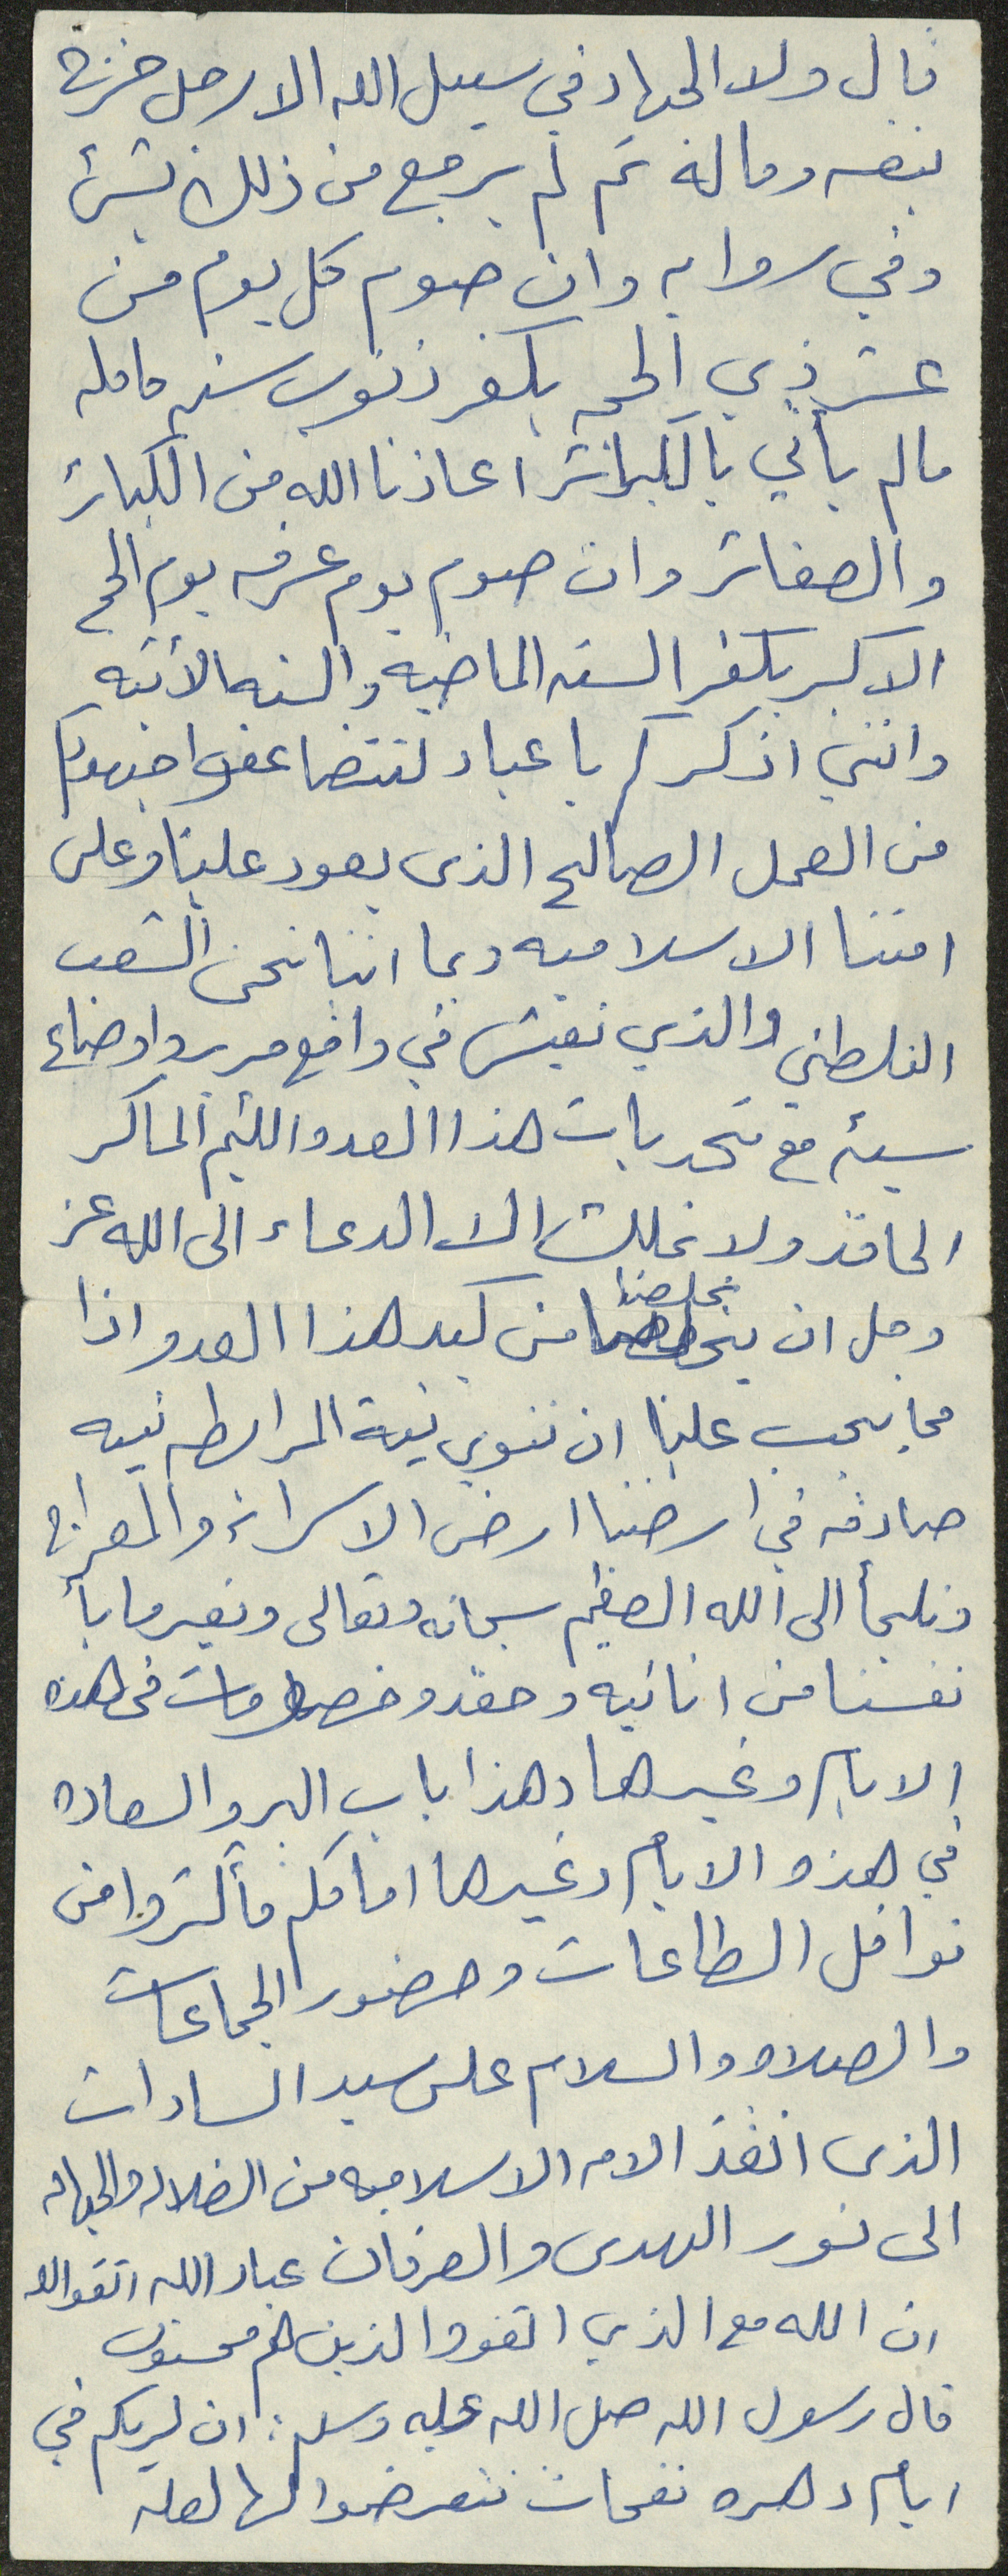 قال ولا الجهاد في سبيل الله الا رجل خرج
بنفسه وماله ثم لم يرجع من ذلك بشئ
وفي روايه وان صوم كل يوم من
عشر ذي الحجه يكفر ذنوب سنه كامله
مالم يأتي بالكبائر اعاذنا الله من الكبائر
والصغائر وان صوم يوم عرفه يوم الحج
الاكبر يكفر السنه الماضيه والسنه الآتيه
وانني اذكركم يا عباد لتضاعفوا جهودكم
من العمل الصالح الذى يعود علينا وعلى
امتنا الاسلاميه وبما اننا نحن الشعب
الفلسطيني والذي نعيش في واقع مرير واوضاع
سيئه مع تحديات هذا العدو اللئيم الماكر
الحاقد ولا نملك الا الدعاء الى الله عز
وجل ان يخلصنا من كيد هذا العدو اذا
مما يجب علينا ان ننوي نية المرابطه نيه
صادقه في ارضنا ارض الاسراء والمعراج
ونلجأ الى الله العظيم سبحانه وتعالى ونغير ما بأ
نفسنا من انانيه وحقد وخصومات في هذه
الايام وغيرها وهذا باب البر والسعاده
في هذه الايام وغيرها امامكم فأكثروا من
نوافل الطاعات وحضور الجماعات
والصلاه والسلام على سيد السادات
الذى انقذ الامه الاسلاميه من الضلاله والجهاله
الى نور الهدى والعرفان عباد الله اتقوا الله
ان الله مع الذي اتقو والذين هم محسنون
قال رسول الله صلى الله عليه وسلم : ان لربكم في
ايام دهره نفحات فتعرضوا لها لعله